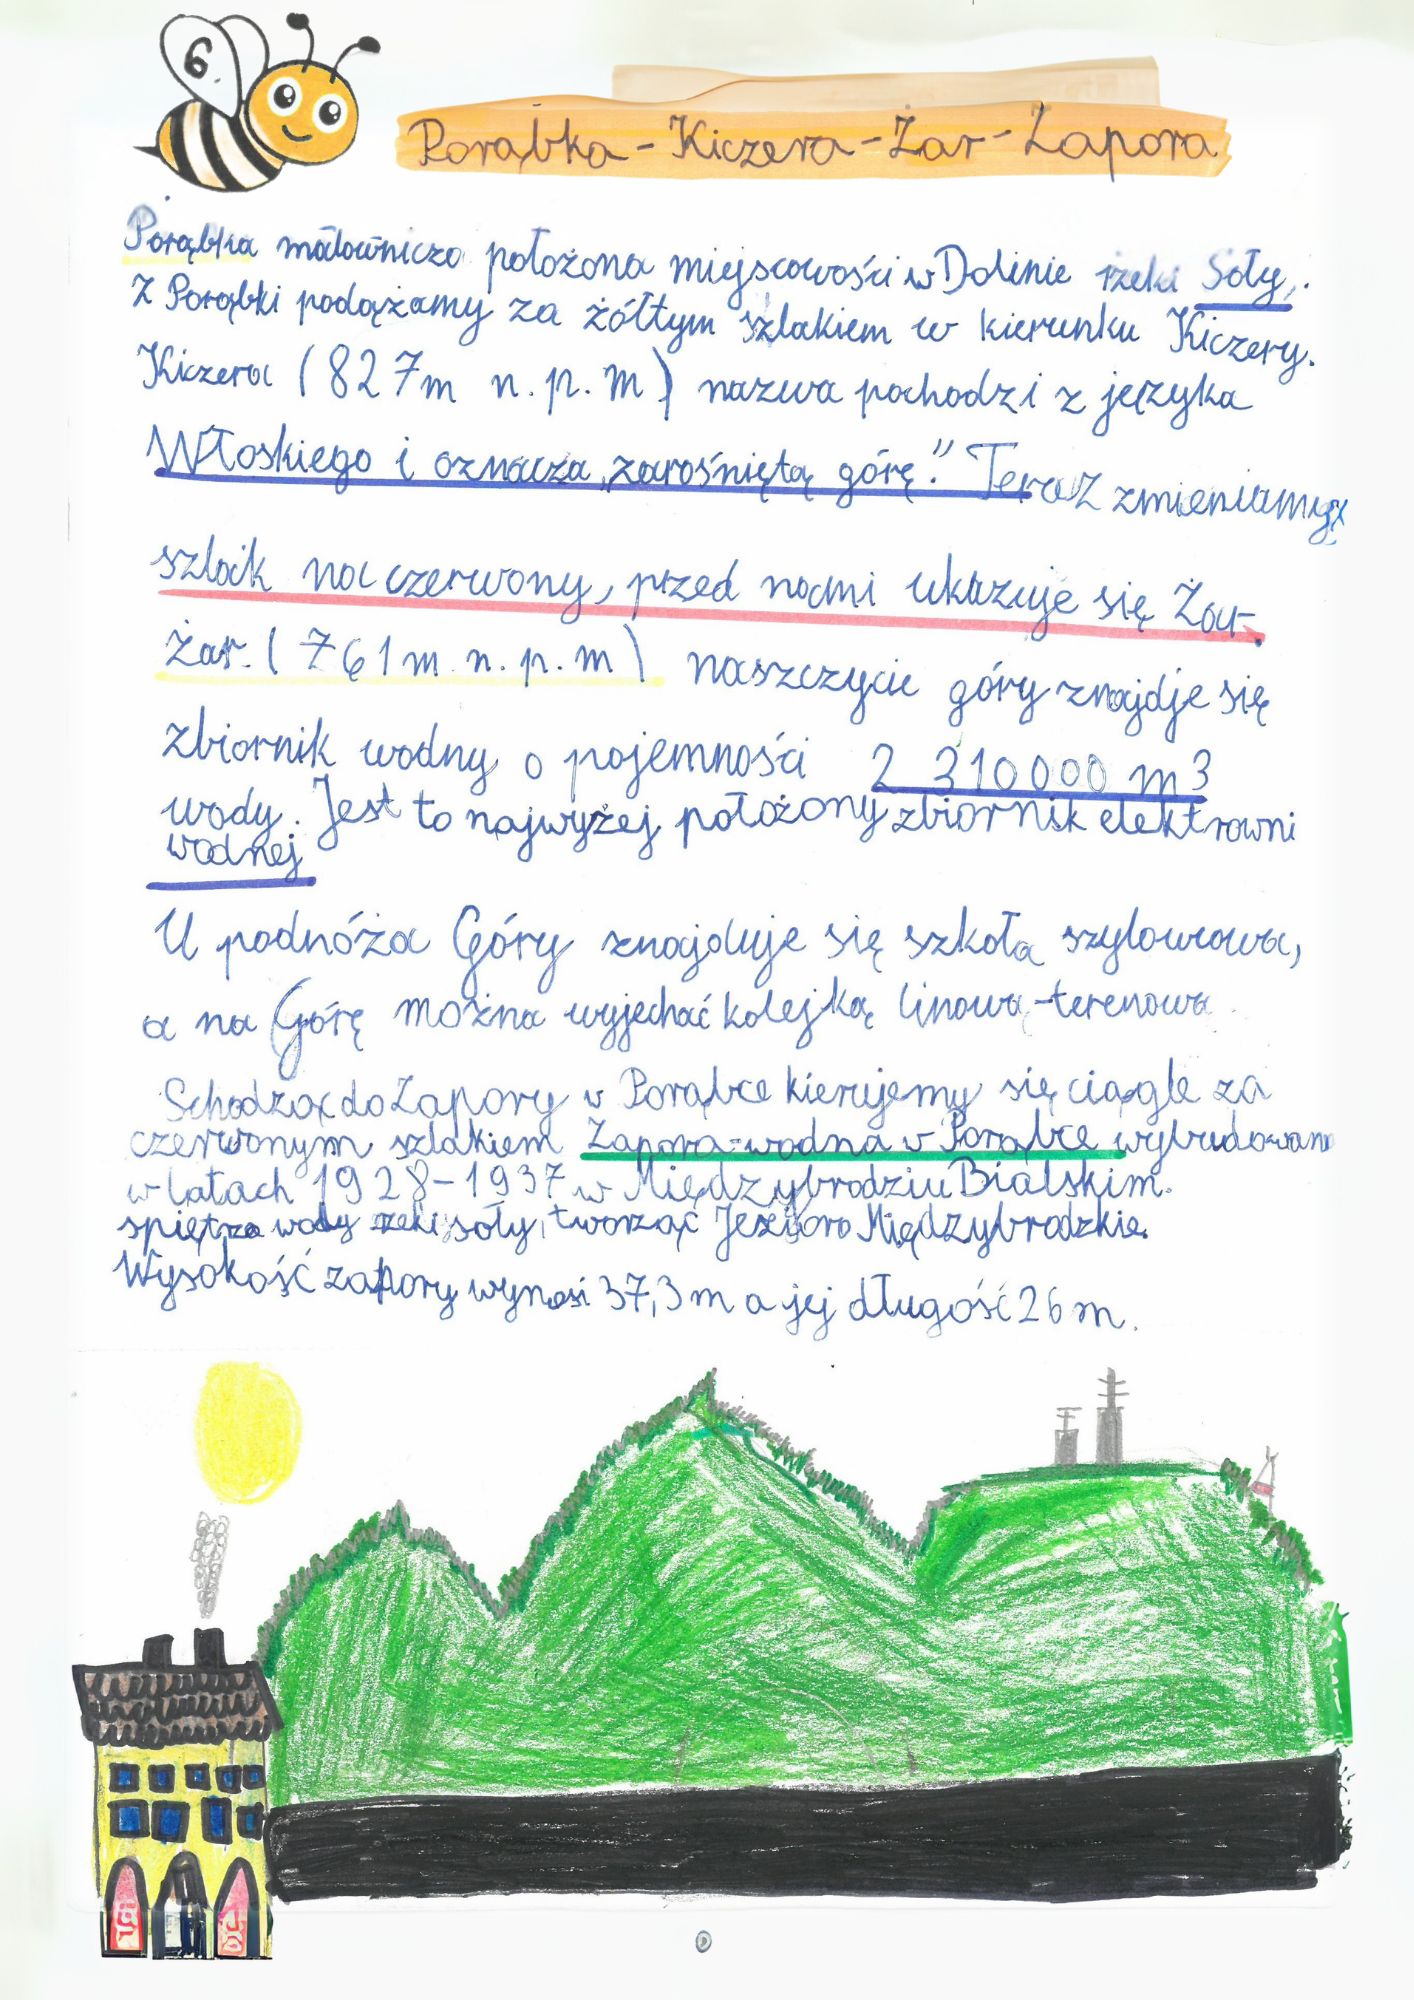 6.
Porąbka-Kiczera-Żar-Zapora
Porąbka malowniczo położona miejscowości w Dolinie rzeki Soły.
Z Porąbki podążamy za żółtym szlakiem w kierunku Kiczery.
Kiczera (827m n.p.m) nazwa pochodzi z języka
Włoskiego i oznacza „zarośniętą górę." Teraz zmieniamy
szlak na czerwony, przed nami ukazuje się Żar.
Żar. (761m n.p.m) naszczycie góry znajdje się
zbiornik wodny o pojemności 2 310000 m3
wody. Jest to najwyżej położony zbiornik elektrowni
wodnej
U podnóża Góry znajduje się szkoła szybowcowa,
a na Górę można wyjechać kolejką linową-terenowa
Schodząc do Zapory w Porąbce kierujemy się ciągle za
czerwonym szlakiem Zapora-wodna w Porąbce wybudowana
w latach 1928-1937 w Międzybrodziu Bialskim.
spiętrza wody rzeki soły, tworząc Jezioro Międzybrodzkie.
Wysokość zapory wynosi 37,3m a jej długość 26m.